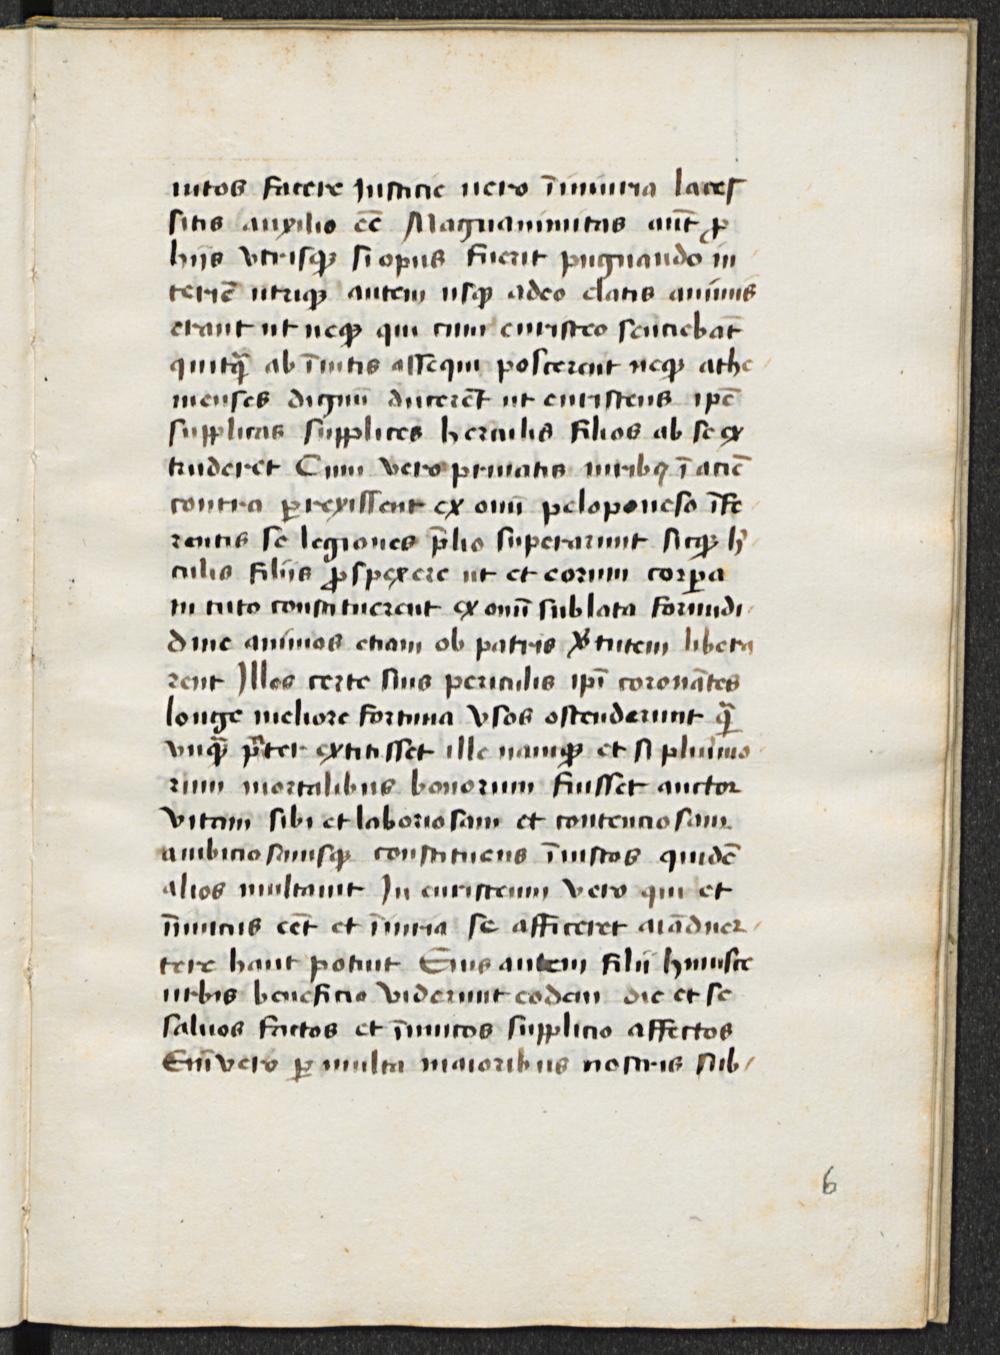 iutos facere Justicie uero īiniuria laces
sitis auxilio eē Magnanimitas aūt ꝓ
hijs vtrisqꝫ si opus fuerit pugnando in
teriē utriqꝫ autem usqꝫ adeo elatis animis
erant ut neqꝫ qui cum euristeo senciebāt
quitq̄ ab īuitis assequi poscerent neqꝫ athe
nienses dignū ducerēt ut euristeus ipē
supplicas supplices herculis filios ab se ex
truderet Cum vero priuatis uiribꝫ ī aciē
contra ꝑrexissent ex omī peloponeso īfe
rentis se legiones p̄lio superarunt sicqꝫ h̓
culis filijs ꝓspexere ut et eorum corꝑa
in tuto constituerent ex omī sublata formidi
dine animos etiam ob patris v̓tutem libera
rent Illos certe suis periculis ipī coronātes
longe meliore fortuna vsos ostenderunt q̄
vnq̄ p̄ter extitisset ille namqꝫ et si plurimo
rum mortalibus bonorum fuisset auctor
vitam sibi et laboriosam et contenciosam
ambiciosamsqꝫ constituens īiustos quidē
alios multauit In euristeum vero qui et
īimicus eēt et īiuria se afficeret aīaduer
tere haut potuit Eius autem filii huiusce
urbis beneficio viderunt eodem die et se
saluos factos et īimicos supplicio affectos
Enī vero ꝑ multa maioribus nostris sub
6